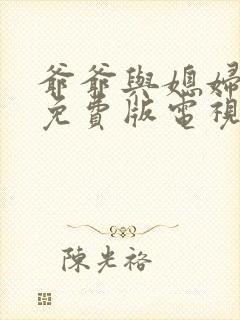 爺爺與媳婦
免費版電視
陳光裕